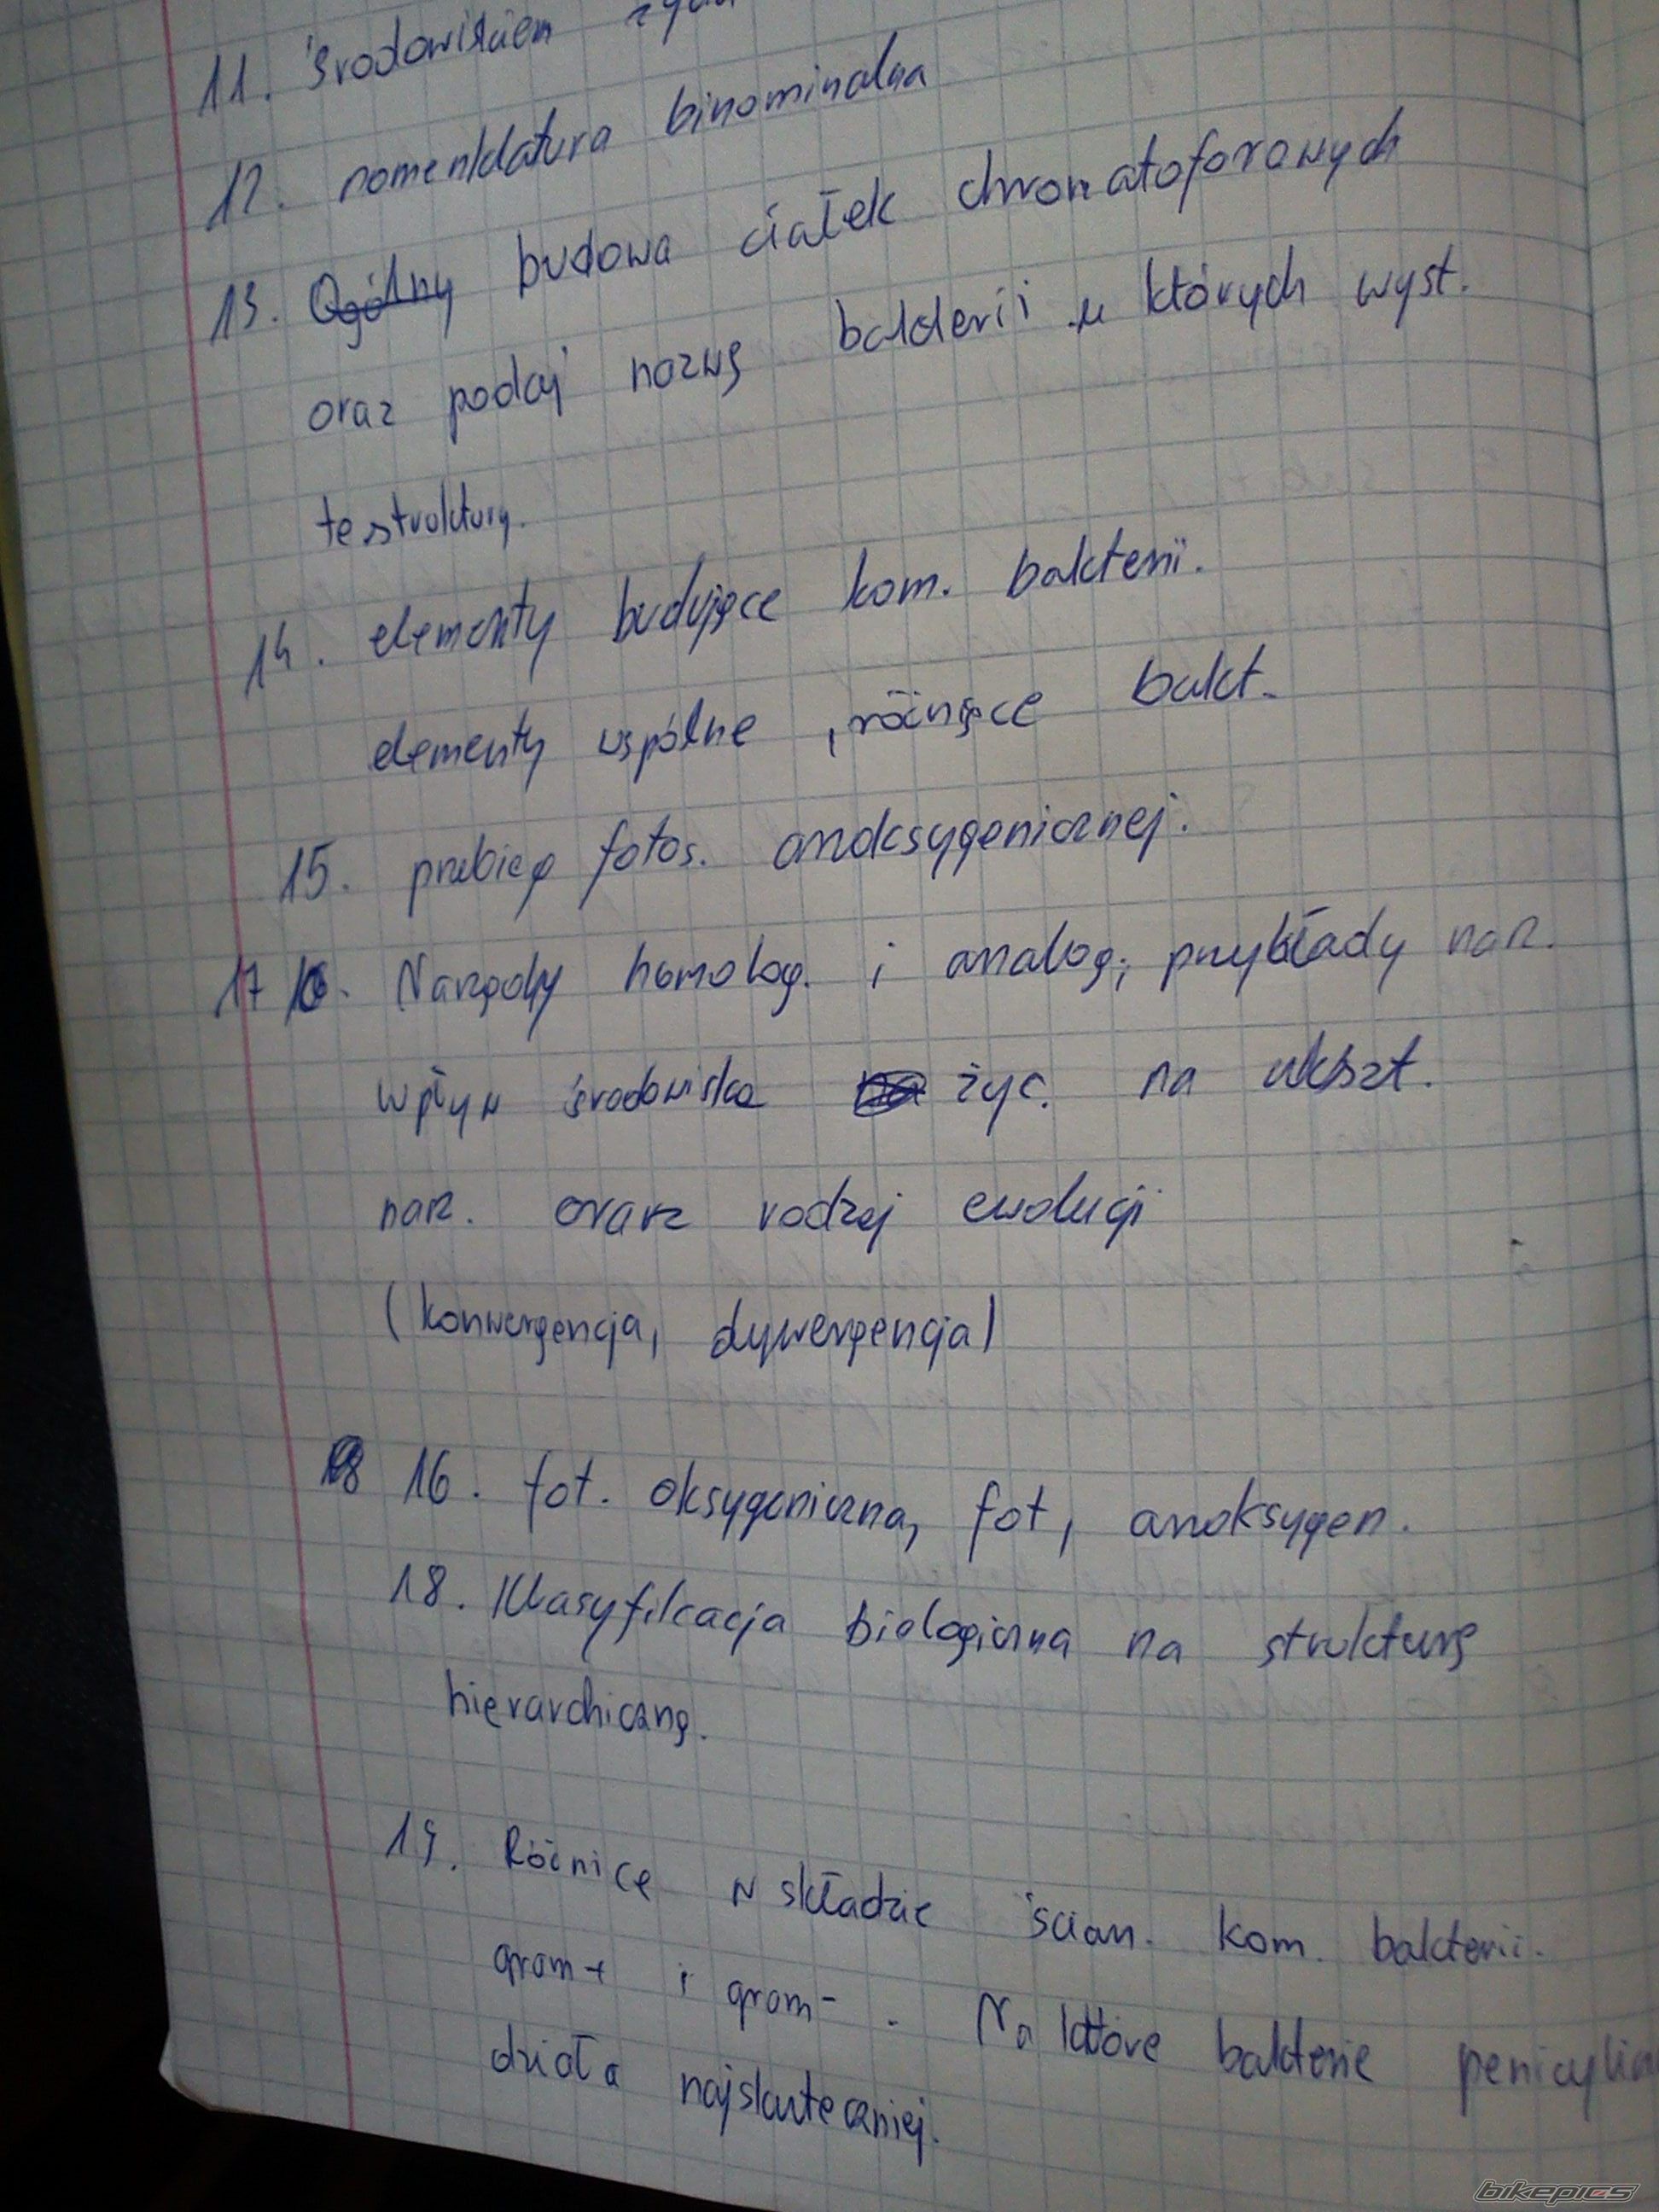 11. środowiskiem
12. nomenklatura binominalna
13. Ogólny budowa ciałek chromatoforowych
oraz podaj nazwę bakterii u których wyst.
te struktury.
14. elementy budujące kom. bakterii.
elementy wspólne, różniące bakt.
15. przebieg fotos. anoksygenicznej.
17 16. Narządy homolog. i analog; przykłady narz.
wpływ środowiska na życ. na ukszt.
narz. oraz rodzaj ewolucji
(konwergencja, dywergencja)
18 16. fot. oksygeniczna, fot, anoksygen.
18. Klasyfikacja biologiczna na strukturę
hierarchiczną.
19. Różnice w składzie ścian. kom. bakterii.
gram+ i gram-. Na które bakterie
działa najskuteczniej.
bikepics